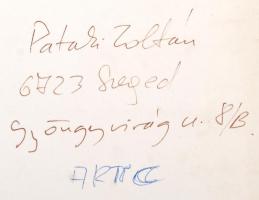 Pataki Zoltán
6723 Szeged
Gyöngyvirág u. 8/B.